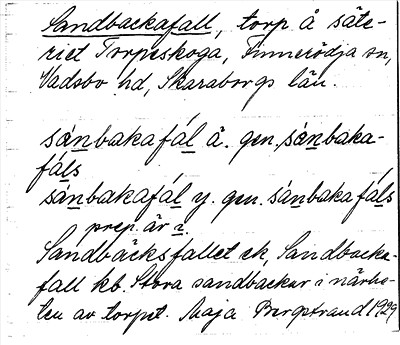 Sandbackafall, torp å säte-
riet Torpeskoga, Finnerödja sn,
Vadsbo hd, Skaraborgs län.
sánbakafál ä. gen. sánbaka-
fáls
sánbakafál y. gen. sánbakafáls
prep. är i.
Sandbäcksfallet ek, Sandbacka-
fall kb. Stora sandbackar i närhe-
ten av torpet. Maja Bergstrand 1929